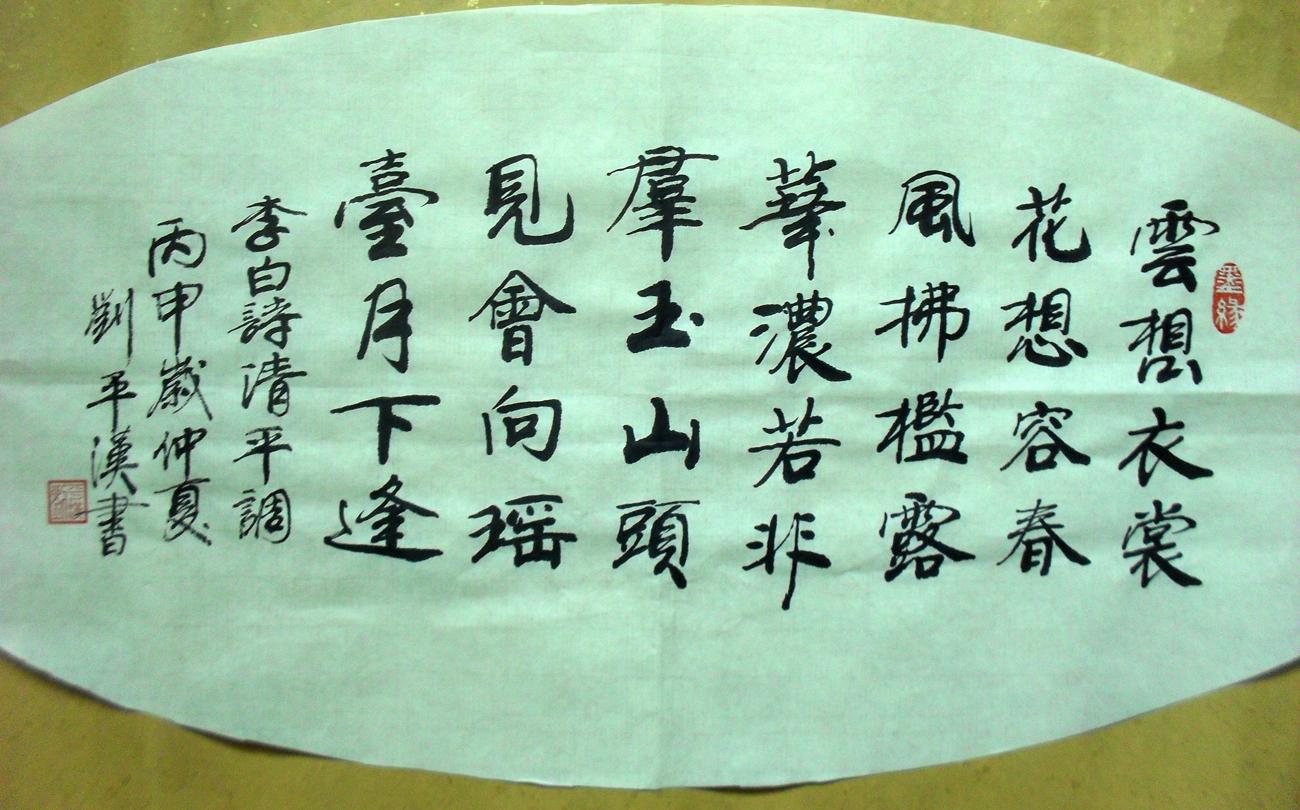 雲想衣裳
花想容春
風拂檻露
華濃若非
羣玉山頭
見會向瑶
臺月下逢
李白詩清平調
丙申歲仲夏
劉平漢書
墨緣